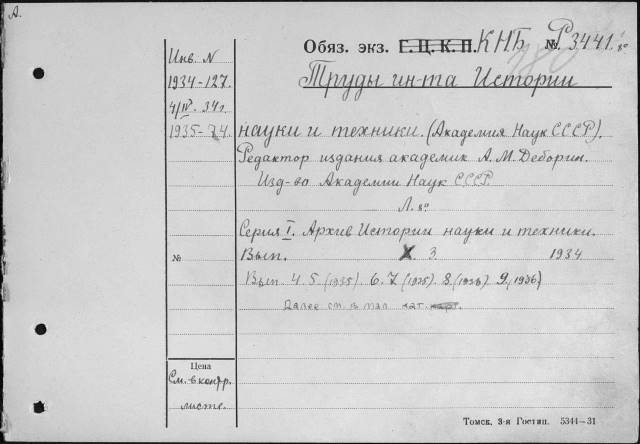 А.
Обяз. экз. Г. Ц. К. П. КНБ № Р3441. 8°
Инв. N
1934-127.
4/IV. 34г.
1935-74.
№
Цена
См. в контр.
листе.
Труды ин-та Истории
науки и техники. (Академия Наук СССР).
Редактор издания академик А. М. Деборин.
Изд-во Академии Наук СССР.
Л. 8°
Серия I. Архив Истории науки и техники.
Вып. 3. 1934
Вып 4. 5. (1935). 6. 7 (1935). 8 (1936) 9, (1936)
Далее см. в кат.
Томск. 3-я Гостип. 5344—31